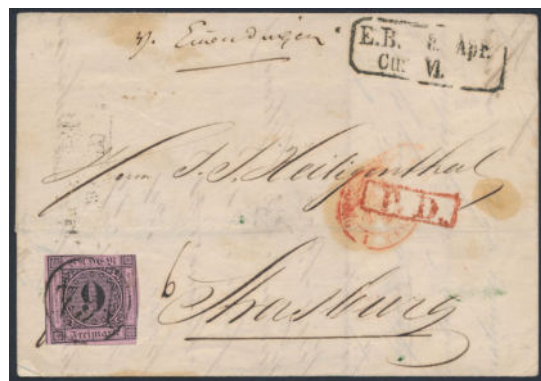 v. Emendingen
E.B. 8. Apr.
Cur. VI.
Herrn J. J. Heiligenthal
P. D.
6
Strasburg
9
Freimarke